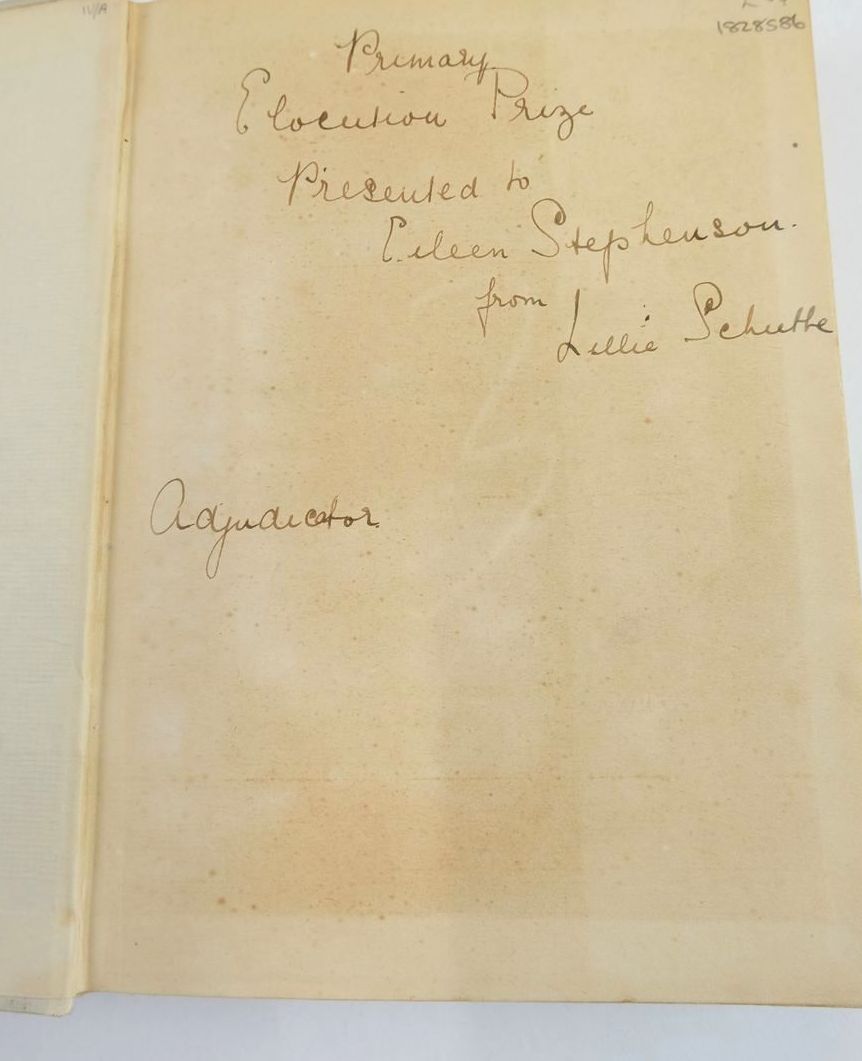 1828586
Primary
Elocution Prize
Presented to
Eileen Stephenson.
from
Lillie Schutte
Adjudicator.